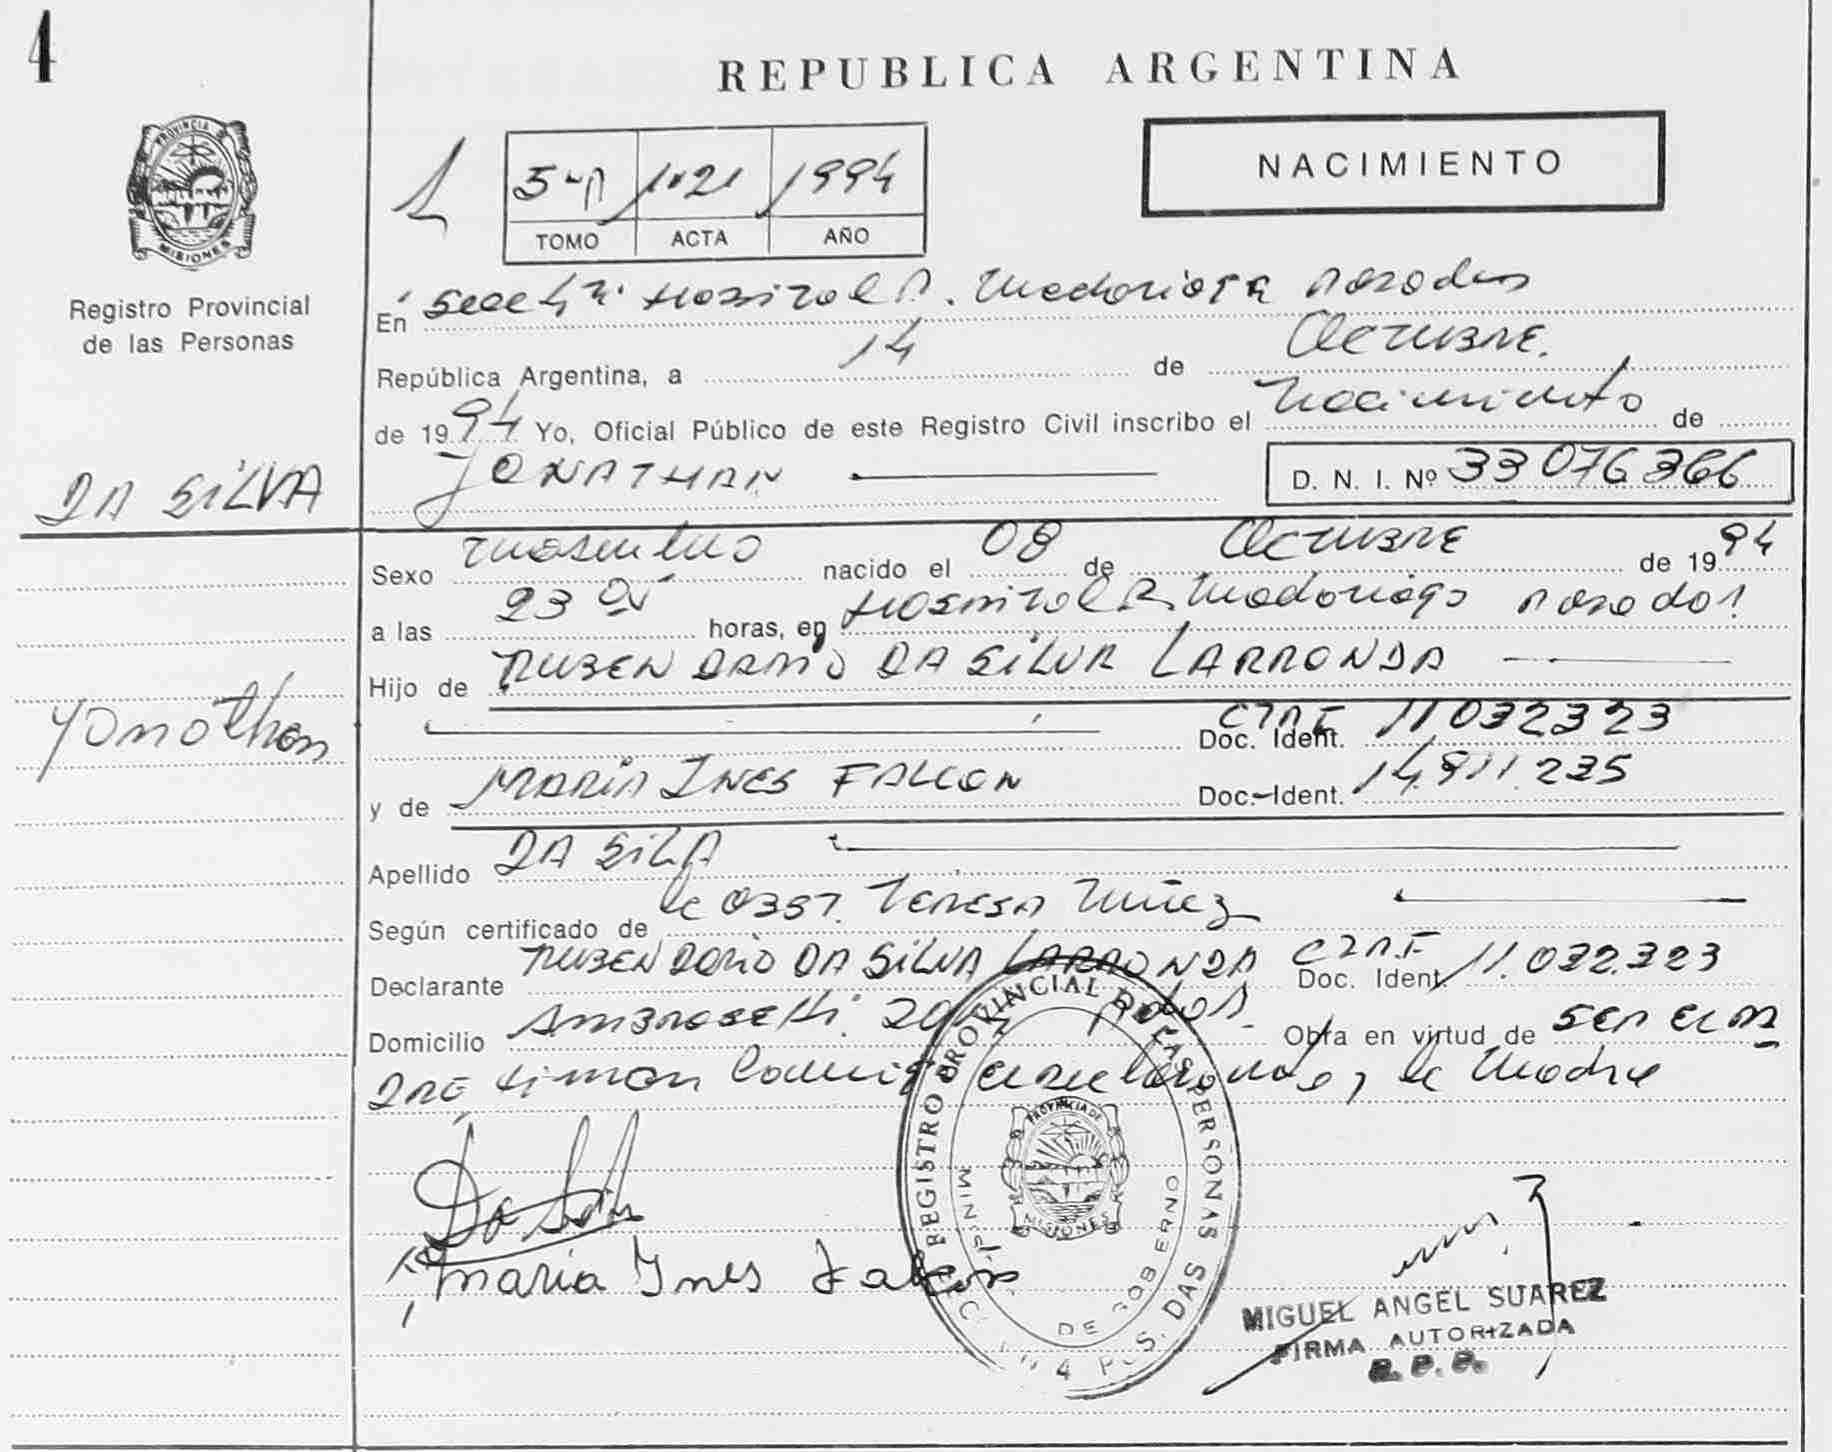 4
REPUBLICA ARGENTINA
PROVINCIA DE
MISIONES
Registro Provincial
de las Personas
1
1994
TOMO ACTA AÑO
NACIMIENTO
En Secc 4ª Hospital R. Madariaga Posadas
República Argentina, a 14 de Octubre.
de 1994 Yo, Oficial Público de este Registro Civil inscribo el Nacimiento de
DA SILVA
JONATHAN
D. N. I. Nº 33076366
Sexo masculino nacido el 08 de Octubre de 1994
a las 23 horas, en Hospital R. Madariaga Posadas
Hijo de RUBEN DARIO DA SILVA LARRONDA
Jonathan
Doc. Ident. 11032323
y de MARIA INES FALCON Doc. Ident. 14.911.235
Apellido DA SILA
Según certificado de la OBST. TERESA Nuñez
Declarante RUBEN DARIO DA SILVA LARRONDA Doc. Ident. 11.032.323
Domicilio Ambrosetti Pdas. Obra en virtud de SER EL
PADRE firman la madre
Da Silva
Maria Ines Falcon
REGISTRO PROVINCIAL DE LAS PERSONAS
PROVINCIA DE
MISIONES
DE GOBIERNO
MIGUEL ANGEL SUAREZ
FIRMA AUTORIZADA